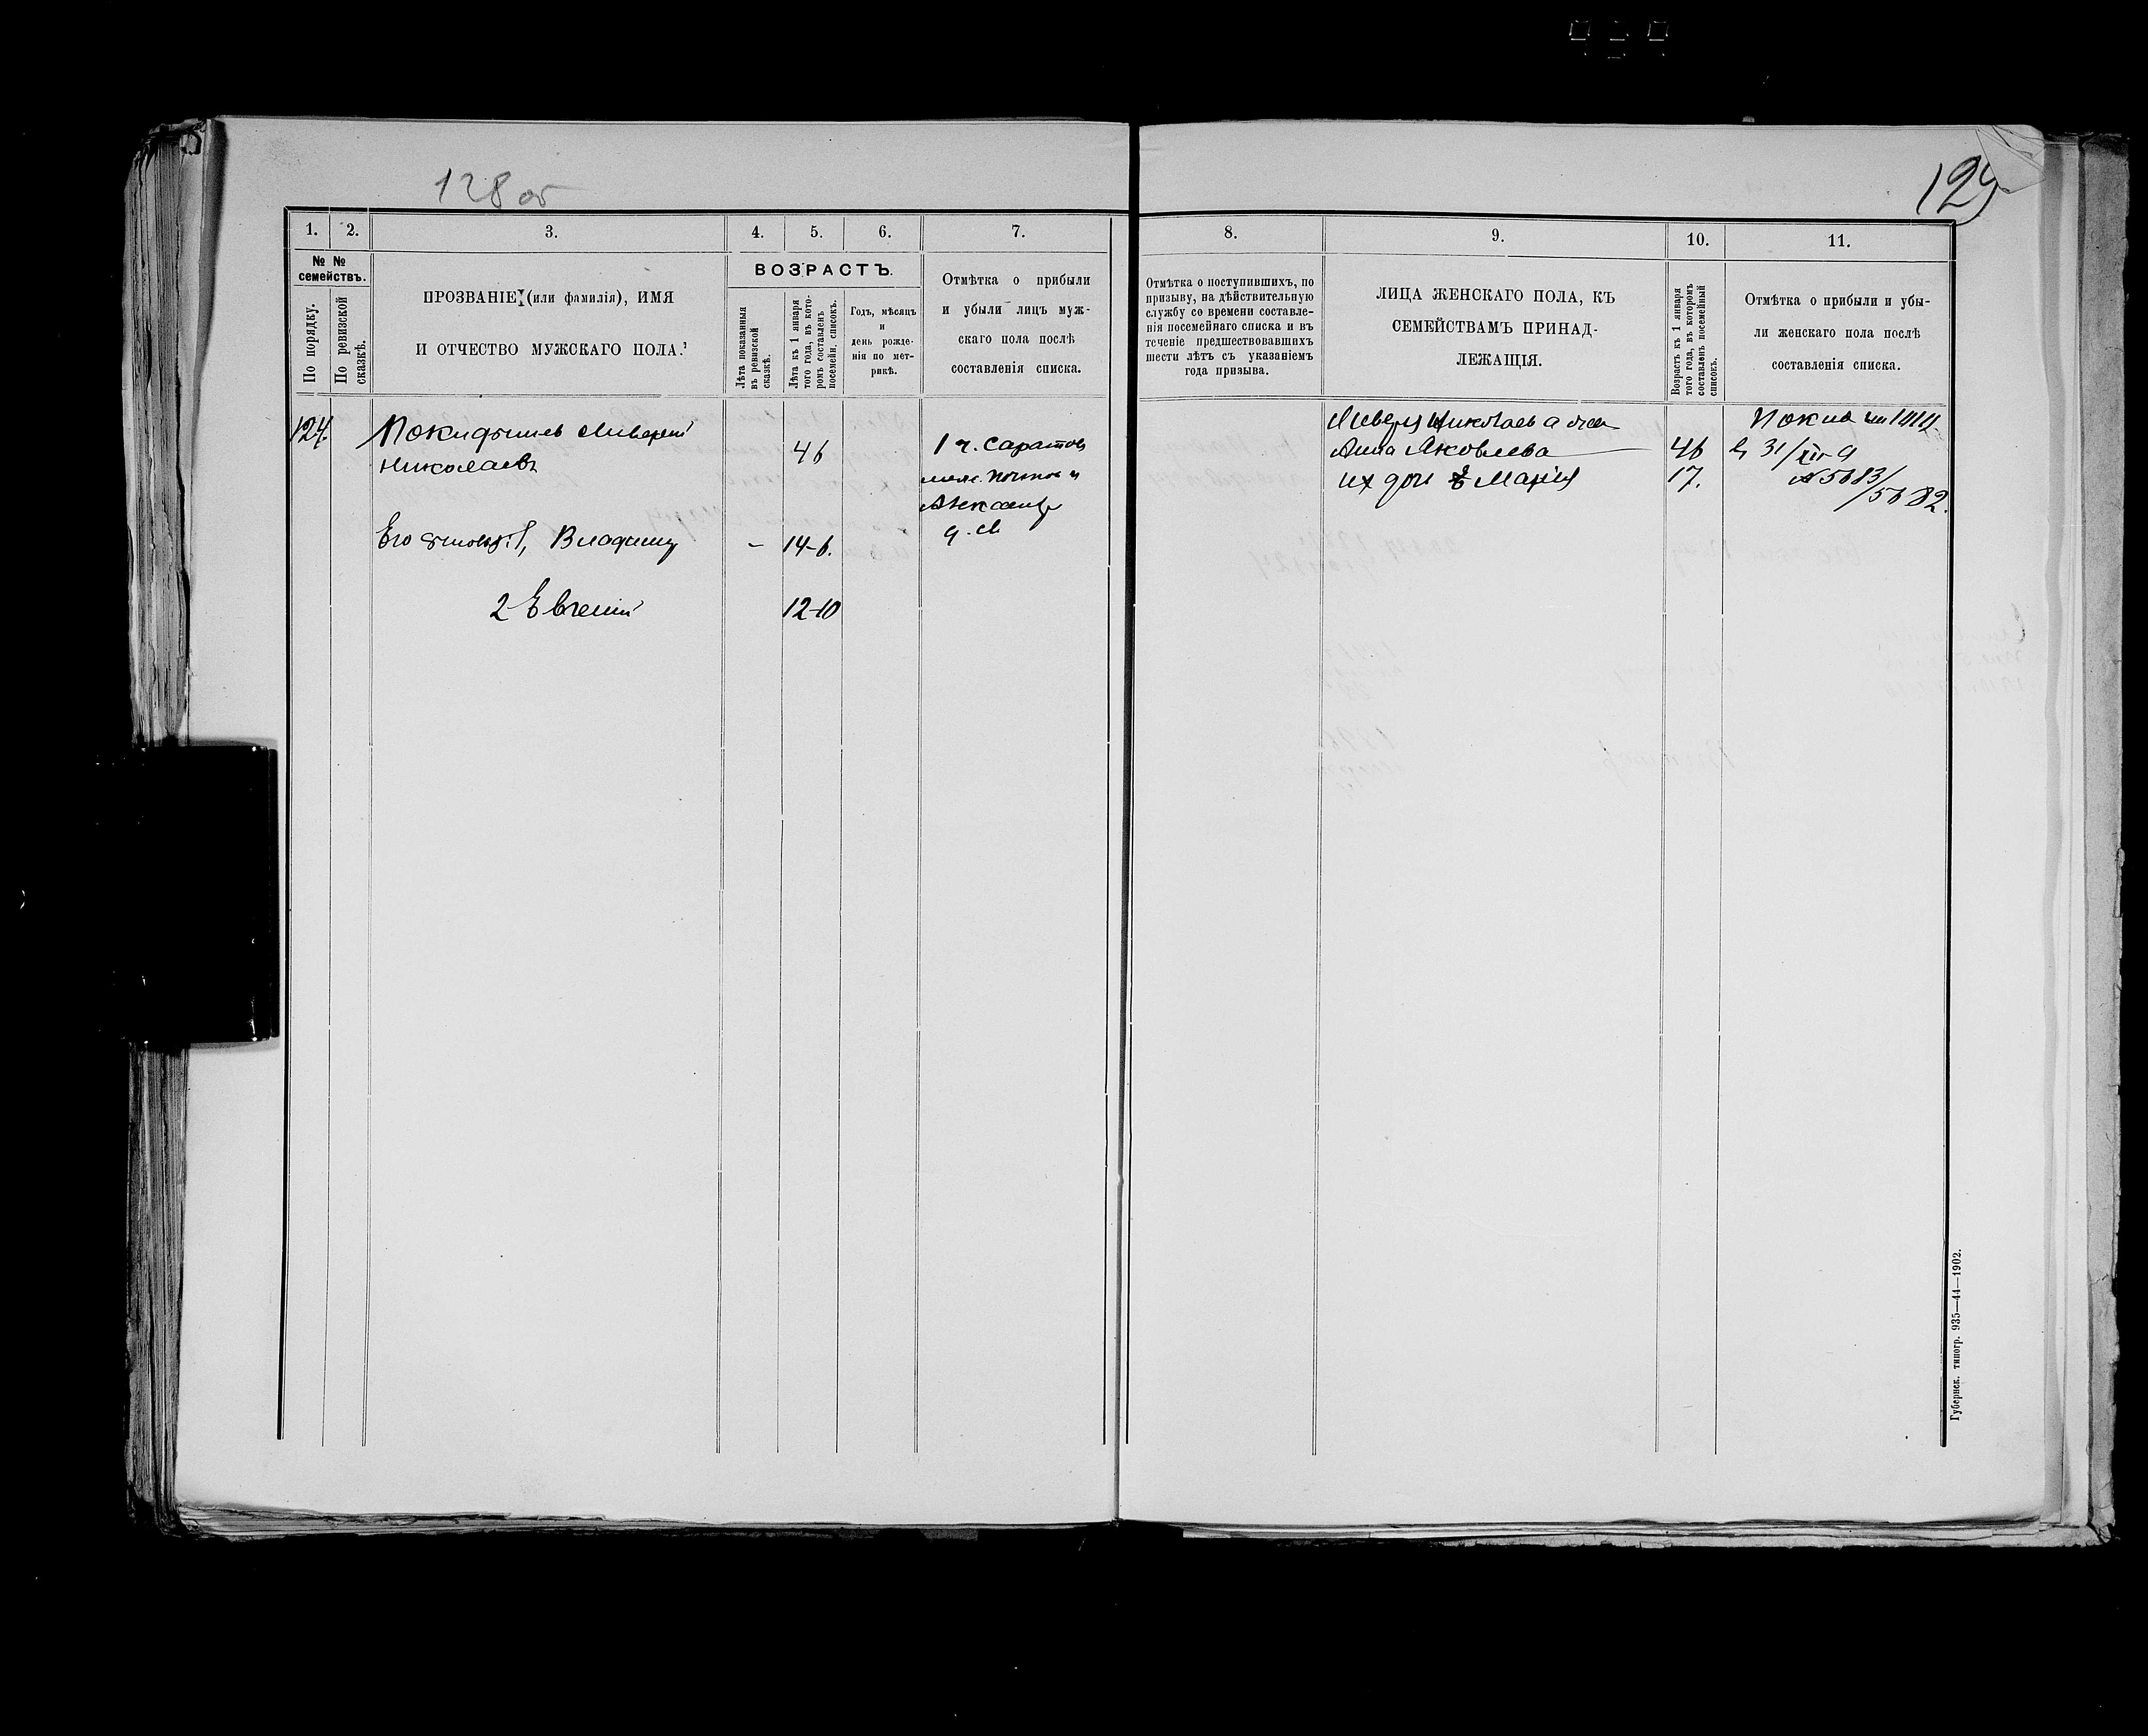 128 об
129
1.
2.
3.
4.
5.
6.
7.
№ №
семействъ.
По порядку.
По ревизской
сказкѣ.
ПРОЗВАНІЕ (или фамилія), ИМЯ
И ОТЧЕСТВО МУЖСКАГО ПОЛА.
ВОЗРАСТЪ.
Лѣта показанныя
въ ревизской
сказкѣ.
Лѣта къ 1 января
того года, въ кото-
ромъ составленъ
посемейн. списокъ.
Годъ, мѣсяцъ
и
день рожде-
нія по мет-
рикѣ.
Отмѣтка о прибыли
и убыли лицъ муж-
скаго пола послѣ
составленія списка.
124.
Николаевъ
46
1 г. Саратов
Его Владимір
- 14-6.
2 Евгеній
12-10
8.
9.
10.
11.
Отмѣтка о поступившихъ, по
призыву, на дѣйствительную
службу со времени составле-
нія посемейнаго списка и въ
теченіе предшествовавшихъ
шести лѣтъ съ указаніемъ
года призыва.
ЛИЦА ЖЕНСКАГО ПОЛА, КЪ
СЕМЕЙСТВАМЪ ПРИНАД-
ЛЕЖАЩІЯ.
Возрастъ къ 1 января
того года, въ которомъ
составленъ посемейный
списокъ.
Отмѣтка о прибыли и убы-
ли женскаго пола послѣ
составленія списка.
Николаева жен
Анна Яковлева
46
31/XII
их доч Марія
17.
№ 5683/
5682.
Губернск. типогр. 935—44—1902.